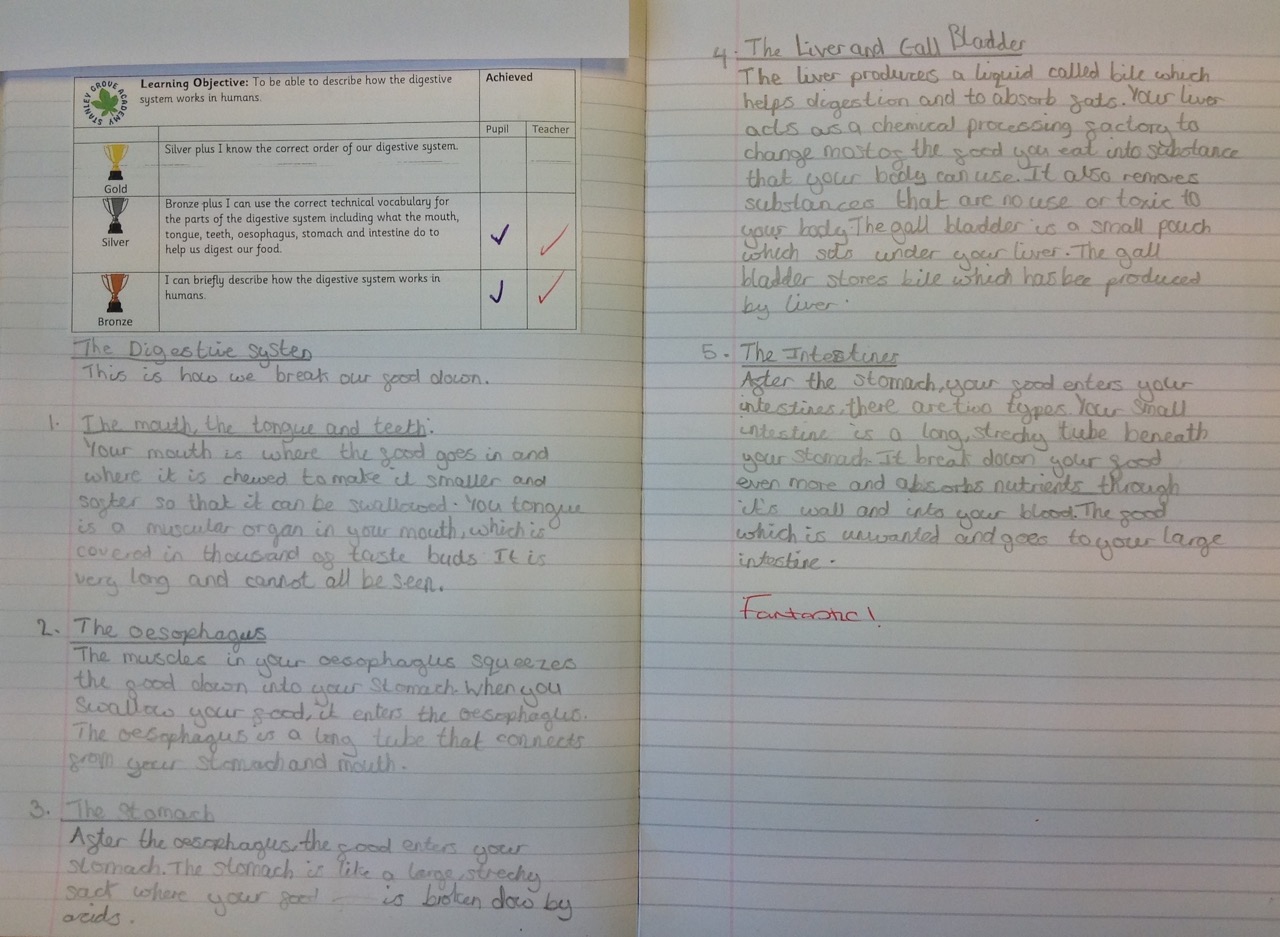 STANLEY GROVE ACADEMY
Learning Objective: To be able to describe how the digestive
system works in humans.
Achieved
Pupil
Teacher
Gold
Silver plus I know the correct order of our digestive system.
Silver
Bronze plus I can use the correct technical vocabulary for
the parts of the digestive system including what the mouth,
tongue, teeth, oesophagus, stomach and intestine do to
help us digest our food.
Bronze
I can briefly describe how the digestive system works in
humans.
The Digestive System
This is how we break our food down.
1. The mouth, the tongue and teeth.
Your mouth is where the food goes in and
where it is chewed to make it smaller and
softer so that it can be swallowed. You tongue
is a muscular organ in your mouth, which is
covered in thousand of taste buds It is
very long and cannot all be seen.
2. The oesophagus
The muscles in your oesophagus squeezes
the food down into your stomach. When you
swallow your food, it enters the oesophagus.
The oesophagus is a long tube that connects
from your stomach and mouth.
3. The Stomach
After the oesophagus, the food enters your
stomach. The stomach is like a large, strechy
sack where your food is broken dow by
acids.
4. The Liver and Gall Bladder
The liver produces a liquid called bile which
helps digestion and to absorb fats. Your liver
acts as a chemical processing factory to
change most of the food you eat into substance
that your body can use. It also removes
substances that are no use or toxic to
your body. The gall bladder is a small pouch
which sits under your liver. The gall
bladder stores bile which has bee produced
by liver.
5. The Intestines
After the stomach, your food enters your
intestines, there are two types. Your small
intestine is a long, strechy tube beneath
your stomach. It break down your food
even more and absorbs nutrients through
it's wall and into your blood. The food
which is unwanted and goes to your large
intestine.
Fantastic!